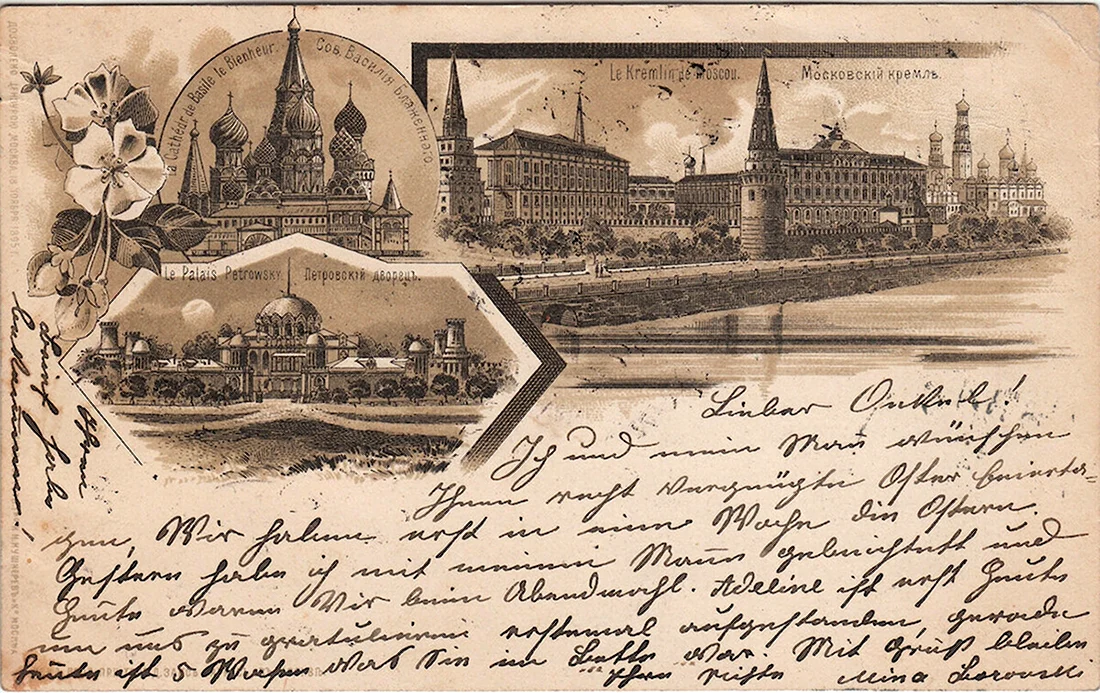 la Cathédr de Basile le Bienheur.
Соб. Василія Блаженнаго
Le Kremlin de Moscou.
Московскій кремль.
Le Palais Petrowsky
Петровскій дворецъ.
Lieber Onkel!
Ich und mein Mann wünschen
Ihnen recht vergnügte Oster feierta-
gen, Wir haben erst in eine Woche die Ostern.
Gestern habe ich mit meinem Mann gebeichtett und
Heute waren Wir beim Abendmahl. Adeline ist erst Heute
um uns zu gratulieren erstemal aufgestanden, gerade
heute ist 5 Wochen was Sie im Bette war. Mit Gruß bleiben
Ihre Nichte Mina Borovski